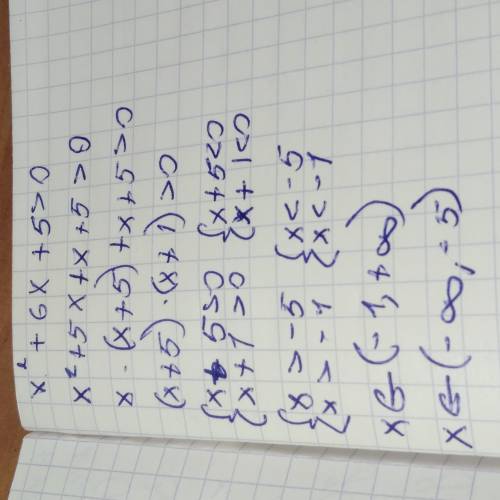 x² + 6x + 5 > 0
x² + 5x + x + 5 > 0
x · (x + 5) + x + 5 > 0
(x + 5) · (x + 1) > 0
{x + 5 > 0 {x + 5 < 0
{x + 1 > 0 {x + 1 < 0
{x > -5 {x < -5
{x > -1 {x < -1
x ∈ (-1, +∞)
x ∈ (-∞; -5)